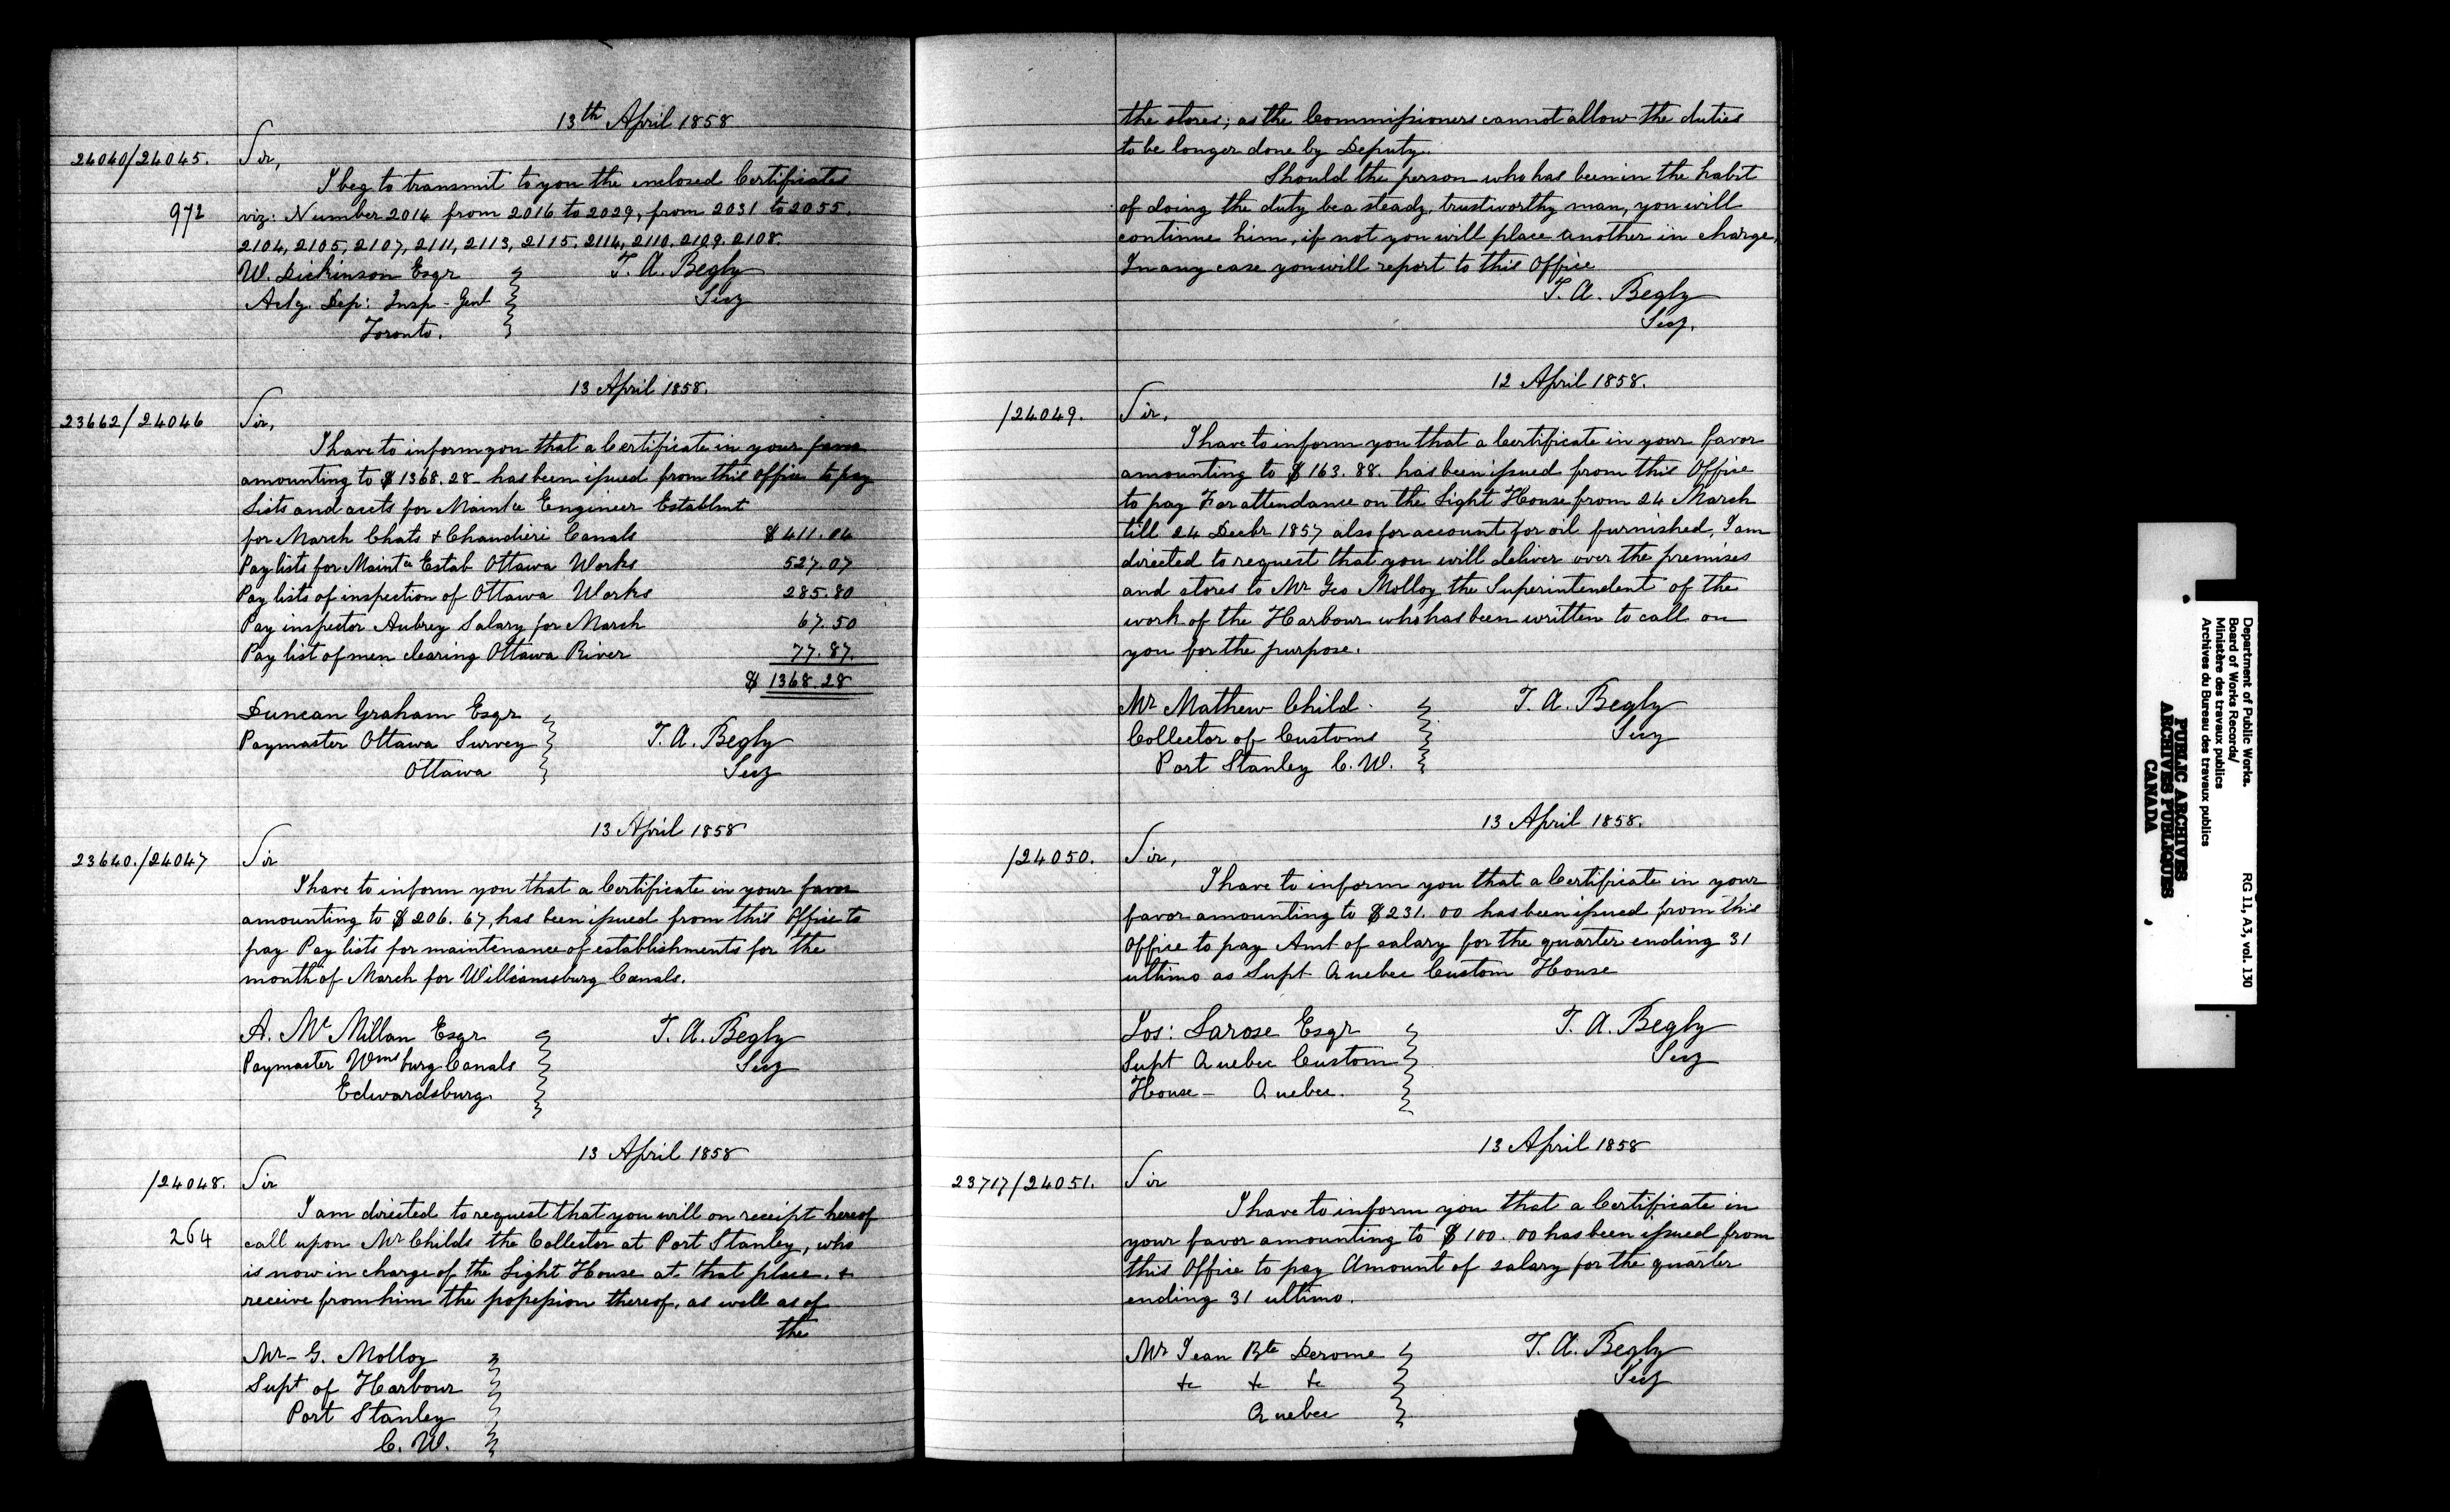 13th April 1858
24040/24045. Sir,
I beg to transmit to you the enclosed Certificates
972 viz: Number 2014 from 2016 to 2029, from 2031 to 2055.
2104, 2105, 2107, 2111, 2113, 2115. 2114, 2110, 2109. 2108.
W. Dickinson Esqr T. A. Begly
Actg. Dep: Insp - Genl Secy
Toronto.
13 April 1858.
23662/24046 Sir,
I have to inform you that a Certificate in your favor
amounting to $1368.28 has been issued from this Office to pay
Lists and accts for Maintce Engineer Establmt
for March Chats & Chaudiere Canals $411.04
Pay lists for Maintce Estab Ottawa Works 527.07
Pay lists of inspection of Ottawa Works 285.80
Pay inspector Aubrey Salary for March 67.50
Pay list of men clearing Ottawa River 77.87.
$1368.28
Duncan Graham Esqr
Paymaster Ottawa Survey T. A. Begly
Ottawa Secy
13 April 1858
23640./24047 Sir
I have to inform you that a Certificate in your favor
amounting to $206.67, has been issued from this Office to
pay Pay lists for maintenance of establishments for the
month of March for Williamsburg Canals.
A. Mc Millan Esqr T. A. Begly
Paymaster Wmsburg Canals Secy
Edwardsburg.
13 April 1858
/24048. Sir
I am directed to request that you will on receipt hereof
264 call upon Mr Childs the Collector at Port Stanley, who
is now in charge of the Light House at that place. &
receive from him the possession thereof, as well as of
the
Mr - G. Molloy
Supt of Harbour
Port Stanley
C. W.
the stores; as the Commissioners cannot allow the duties
to be longer done by Deputy.
Should the person who has been in the habit
of doing the duty be a steady, trustworthy man, you will
continue him, if not you will place another in charge,
In any case you will report to this Office
T. A. Begly
Secy.
12 April 1858.
/24049. Sir,
I have to inform you that a Certificate in your favor
amounting to $163.88. has been issued from this Office
to pay For attendance on the Light House from 24 March
till 24 Decbr 1857 also for account for oil furnished, I am
directed to request that you will deliver over the premises
and stores to Mr Geo Molloy the Superintendent of the
work of the Harbour who has been written to call on
you for the purpose.
Mr Mathew Child T. A. Begly
Collector of Customs Secy
Port Stanley C. W.
13 April 1858.
/24050. Sir,
I have to inform you that a Certificate in your
favor amounting to $231.00 has been issued from this
Office to pay Amt of salary for the quarter ending 31
ultimo as Supt Quebec Custom House
Jos: Larose Esqr T. A. Begly
Supt Quebec Custom Secy
House - Quebec.
13 April 1858
23717/24051. Sir
I have to inform you that a Certificate in
your favor amounting to $100.00 has been issued from
this Office to pay Amount of salary for the quarter
ending 31 ultimo.
Mr Jean Bte Derome T. A. Begly
&c &c &c Secy
Quebec
Department of Public Works.
Board of Works Records/
Ministère des travaux publics
Archives du Bureau des travaux publics
RG 11, A3, vol. 130
PUBLIC ARCHIVES
ARCHIVES PUBLIQUES
CANADA